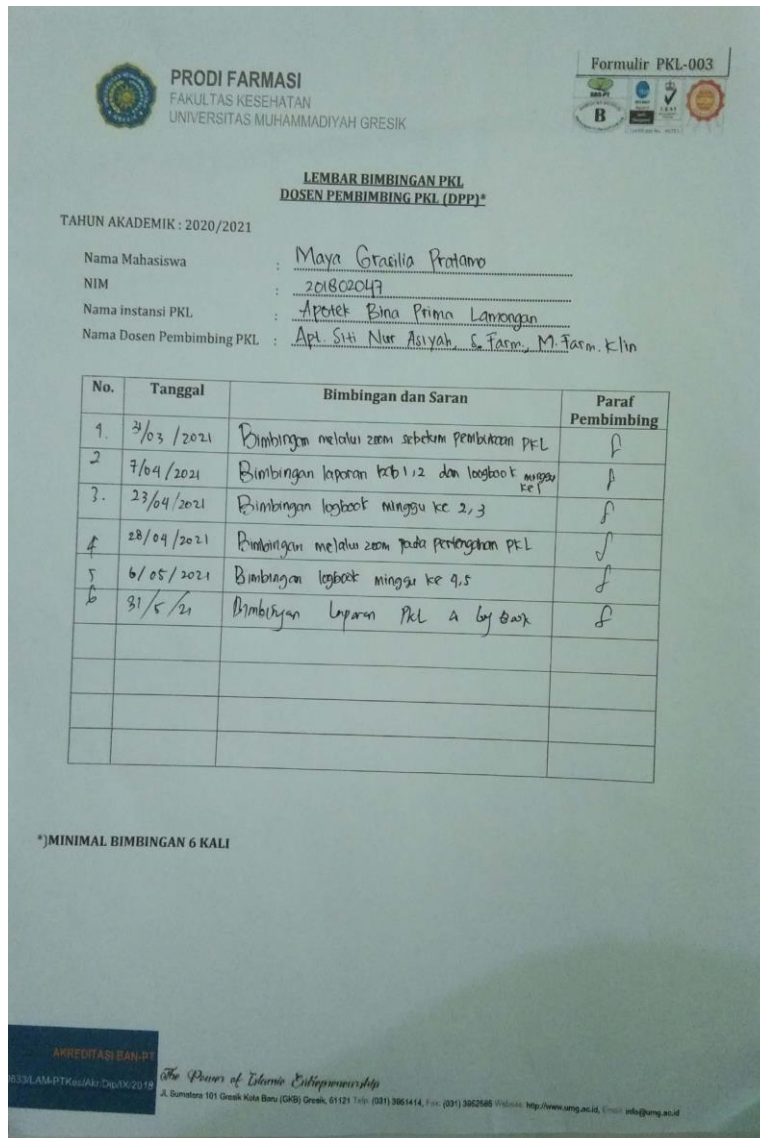 Formulir PKL-003
PRODI FARMASI
FAKULTAS KESEHATAN
UNIVERSITAS MUHAMMADIYAH GRESIK
B
LEMBAR BIMBINGAN PKL
DOSEN PEMBIMBING PKL (DPP)*
TAHUN AKADEMIK : 2020/2021
Nama Mahasiswa : Maya Grasilia Pratamo
NIM : 201802047
Nama instansi PKL : Apotek Bina Prima Lamongan
Nama Dosen Pembimbing PKL : Apt. Siti Nur Asiyah, S. Farm., M. Farm. Klin
No. Tanggal Bimbingan dan Saran Paraf Pembimbing
1. 31/03 /2021 Bimbingan melalui zoom sebelum pembukaan PKL
2 7/04 /2021 Bimbingan laporan bab 1,2 dan loogbook minggu ke 1
3. 23/04 /2021 Bimbingan logbook minggu ke 2,3
4 28/04 /2021 Bimbingan melalui zoom pada pertengahan PKL
5 6/05 /2021 Bimbingan logbook minggu ke 4,5
6 31/5 /21 Bimbingan Laporan PKL & log book
*)MINIMAL BIMBINGAN 6 KALI
AKREDITASI BAN-PT
/LAM-PTKes/Akr/Dip/IX/2018
The Power of Islamic Entrepreneurship
Jl. Sumatera 101 Gresik Kota Baru (GKB) Gresik, 61121 Telp. (031) 3951414, Fax. (031) 3952585 Website: http://www.umg.ac.id, Email: info@umg.ac.id